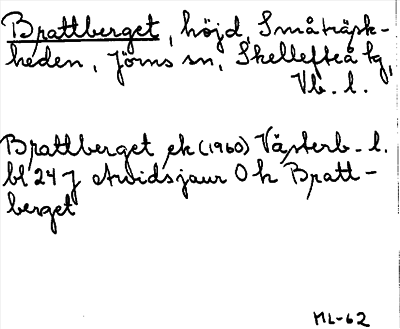 Brattberget, höjd, Småträsk-
heden, Jörns sn, Skellefteå tg,
Vb. l.
Brattberget ek (1960) Västerb. l.
bl 24 J Arvidsjaur O k Bratt-
berget
ML-62